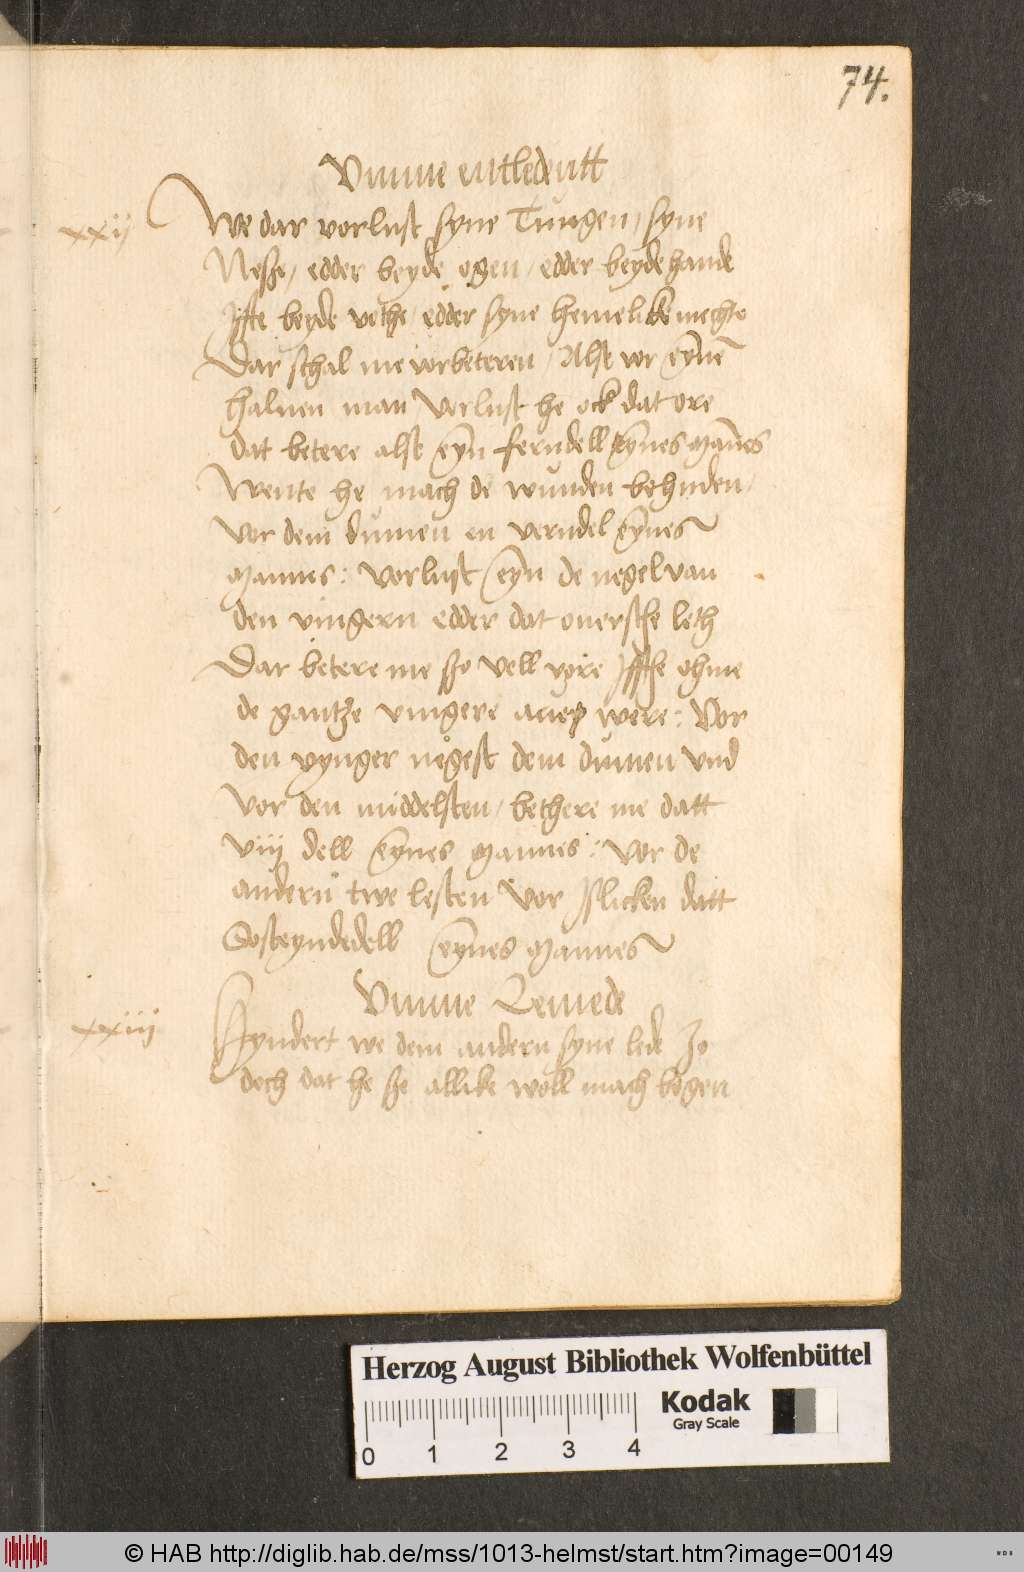 74.
Vmme entledentt
xxij We dar vorlust syne Tungen / syne
Nesse / edder beyde ogen / edder beyde hande
Iffte beyde vethe / edder syne hemelike mechte
Dar schal me vorbeteren / Alse vor eyne
haluen man / Vorlust he ock dat ore
dat betere alse eyn ferndell eynes Mannes
Wente he mach de wunden behuden /
Vor dem dumen en verndel eynes
Mannes : Vorlust eyn de negel van
den vingern edder dat ouersthe leth
Dar betere me sso vell vore Iffthe ohme
de gantze vingere aue were : Vor
den vynger negest dem dumen vnd
Vor den middelsten / bethere me datt
viij dell eynes Mannes : Vor de
andern twe lesten Vor Islicken datt
Sosteyndedell eynes Mannes
Vmme Lemede
xxiij Hyndert we dem andern syne lede Jo
doch dat he se allike woll mach bogen
Herzog August Bibliothek Wolfenbüttel
Kodak
Gray Scale
0 1 2 3 4
© HAB http://diglib.hab.de/mss/1013-helmst/start.htm?image=00149